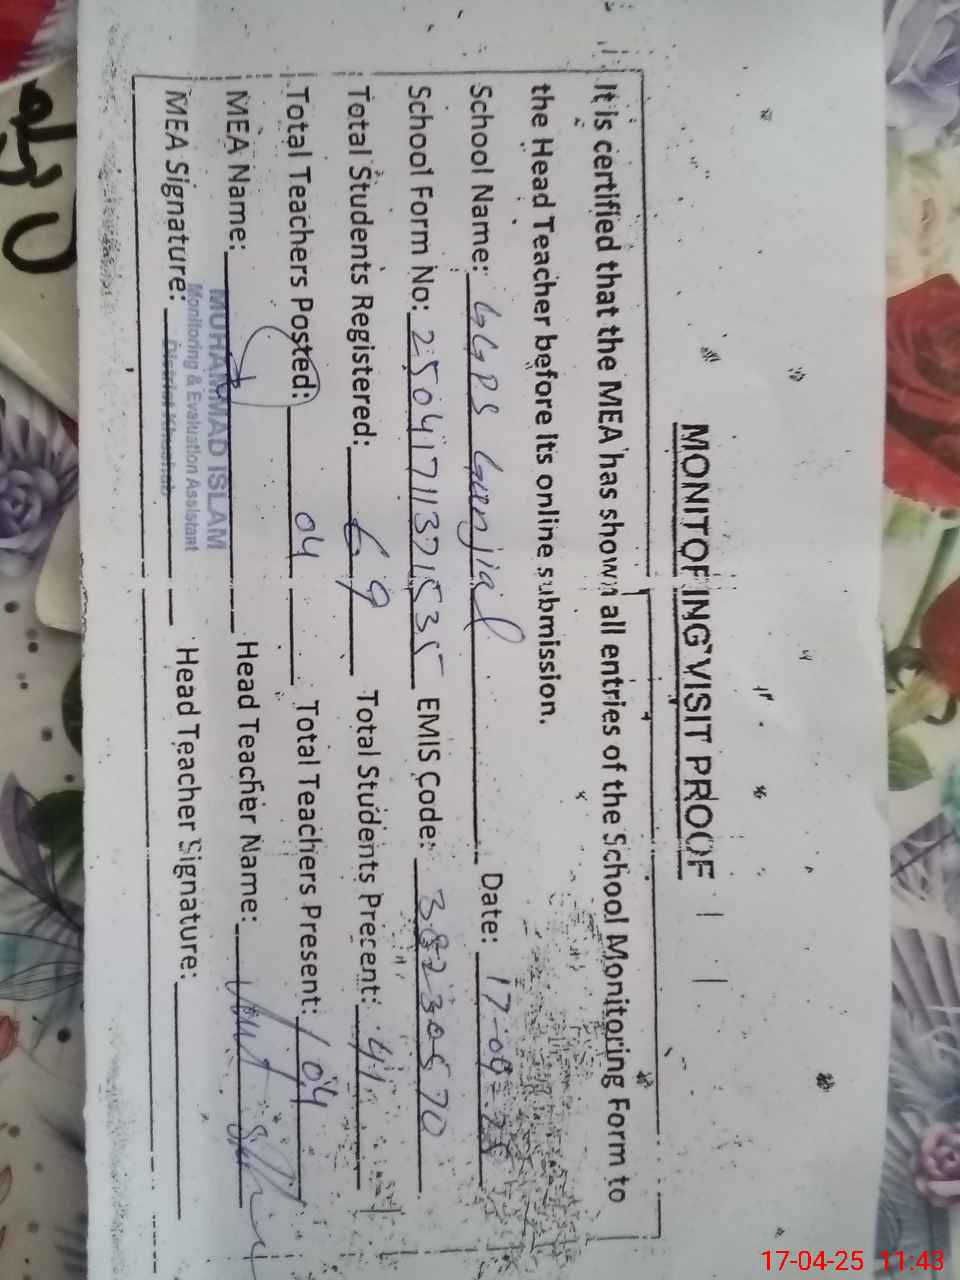 MONITORING VISIT PROOF
It is certified that the MEA has shown all entries of the School Monitoring Form to
the Head Teacher before its online submission.
School Name: GGPS Gunjial Date: 17-04-25
School Form No: 25041711371535 EMIS Code: 38230570
Total Students Registered: 69 Total Students Precent: 41
Total Teachers Posted: 04 Total Teachers Present: 04
MEA Name: MUHAMMAD ISLAM Head Teacher Name:
Monitoring & Evaluation Assistant
MEA Signature: District Khushab Head Teacher Signature:
17-04-25 11:43